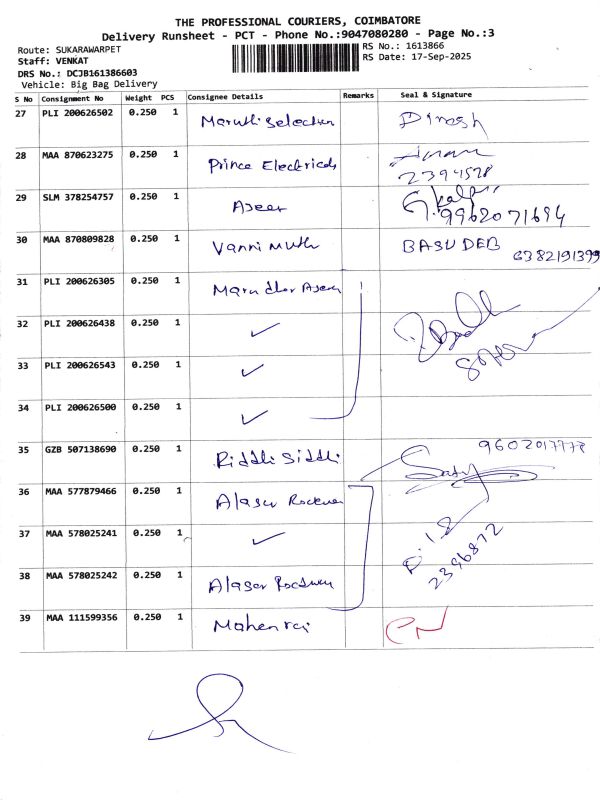 THE PROFESSIONAL COURIERS, COIMBATORE
Delivery Runsheet - PCT - Phone No.:9047080280 - Page No.:3
Route: SUKARAWARPET
RS No.: 1613866
Staff: VENKAT
RS Date: 17-Sep-2025
DRS No.: DCJB161386603
Vehicle: Big Bag Delivery
S No Consignment No Weight PCS Consignee Details Remarks Seal & Signature
27 PLI 200626502 0.250 1 Maruthi Selection Dinesh
28 MAA 870623275 0.250 1 Prince Electricals
2394578
29 SLM 378254757 0.250 1 Ajeer
9962071694
30 MAA 870809828 0.250 1 Vanni Muth BASUDEB 6382191399
31 PLI 200626305 0.250 1 Marudhar Ajeer
32 PLI 200626438 0.250 1 ✓
33 PLI 200626543 0.250 1 ✓
34 PLI 200626500 0.250 1 ✓
35 GZB 507138690 0.250 1 Riddhi Siddhi
36 MAA 577879466 0.250 1 Alasar
37 MAA 578025241 0.250 1 ✓
2396872
38 MAA 578025242 0.250 1 Alasar
39 MAA 111599356 0.250 1 Mahenraj